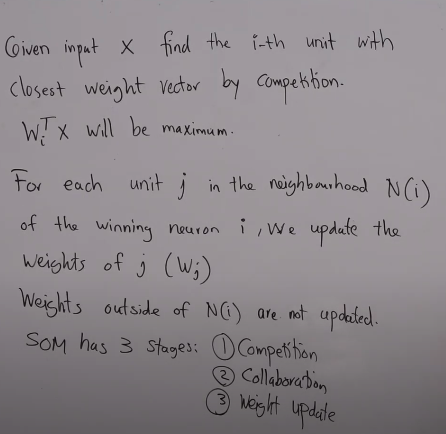 Given input X find the i-th unit with
closest weight vector by competition.
WᵢᵀX will be maximum.
For each unit j in the neighbourhood N(i)
of the winning neuron i, we update the
weights of j (Wⱼ)
Weights outside of N(i) are not updated.
SOM has 3 stages: ① Competition
② Collaboration
③ Weight update